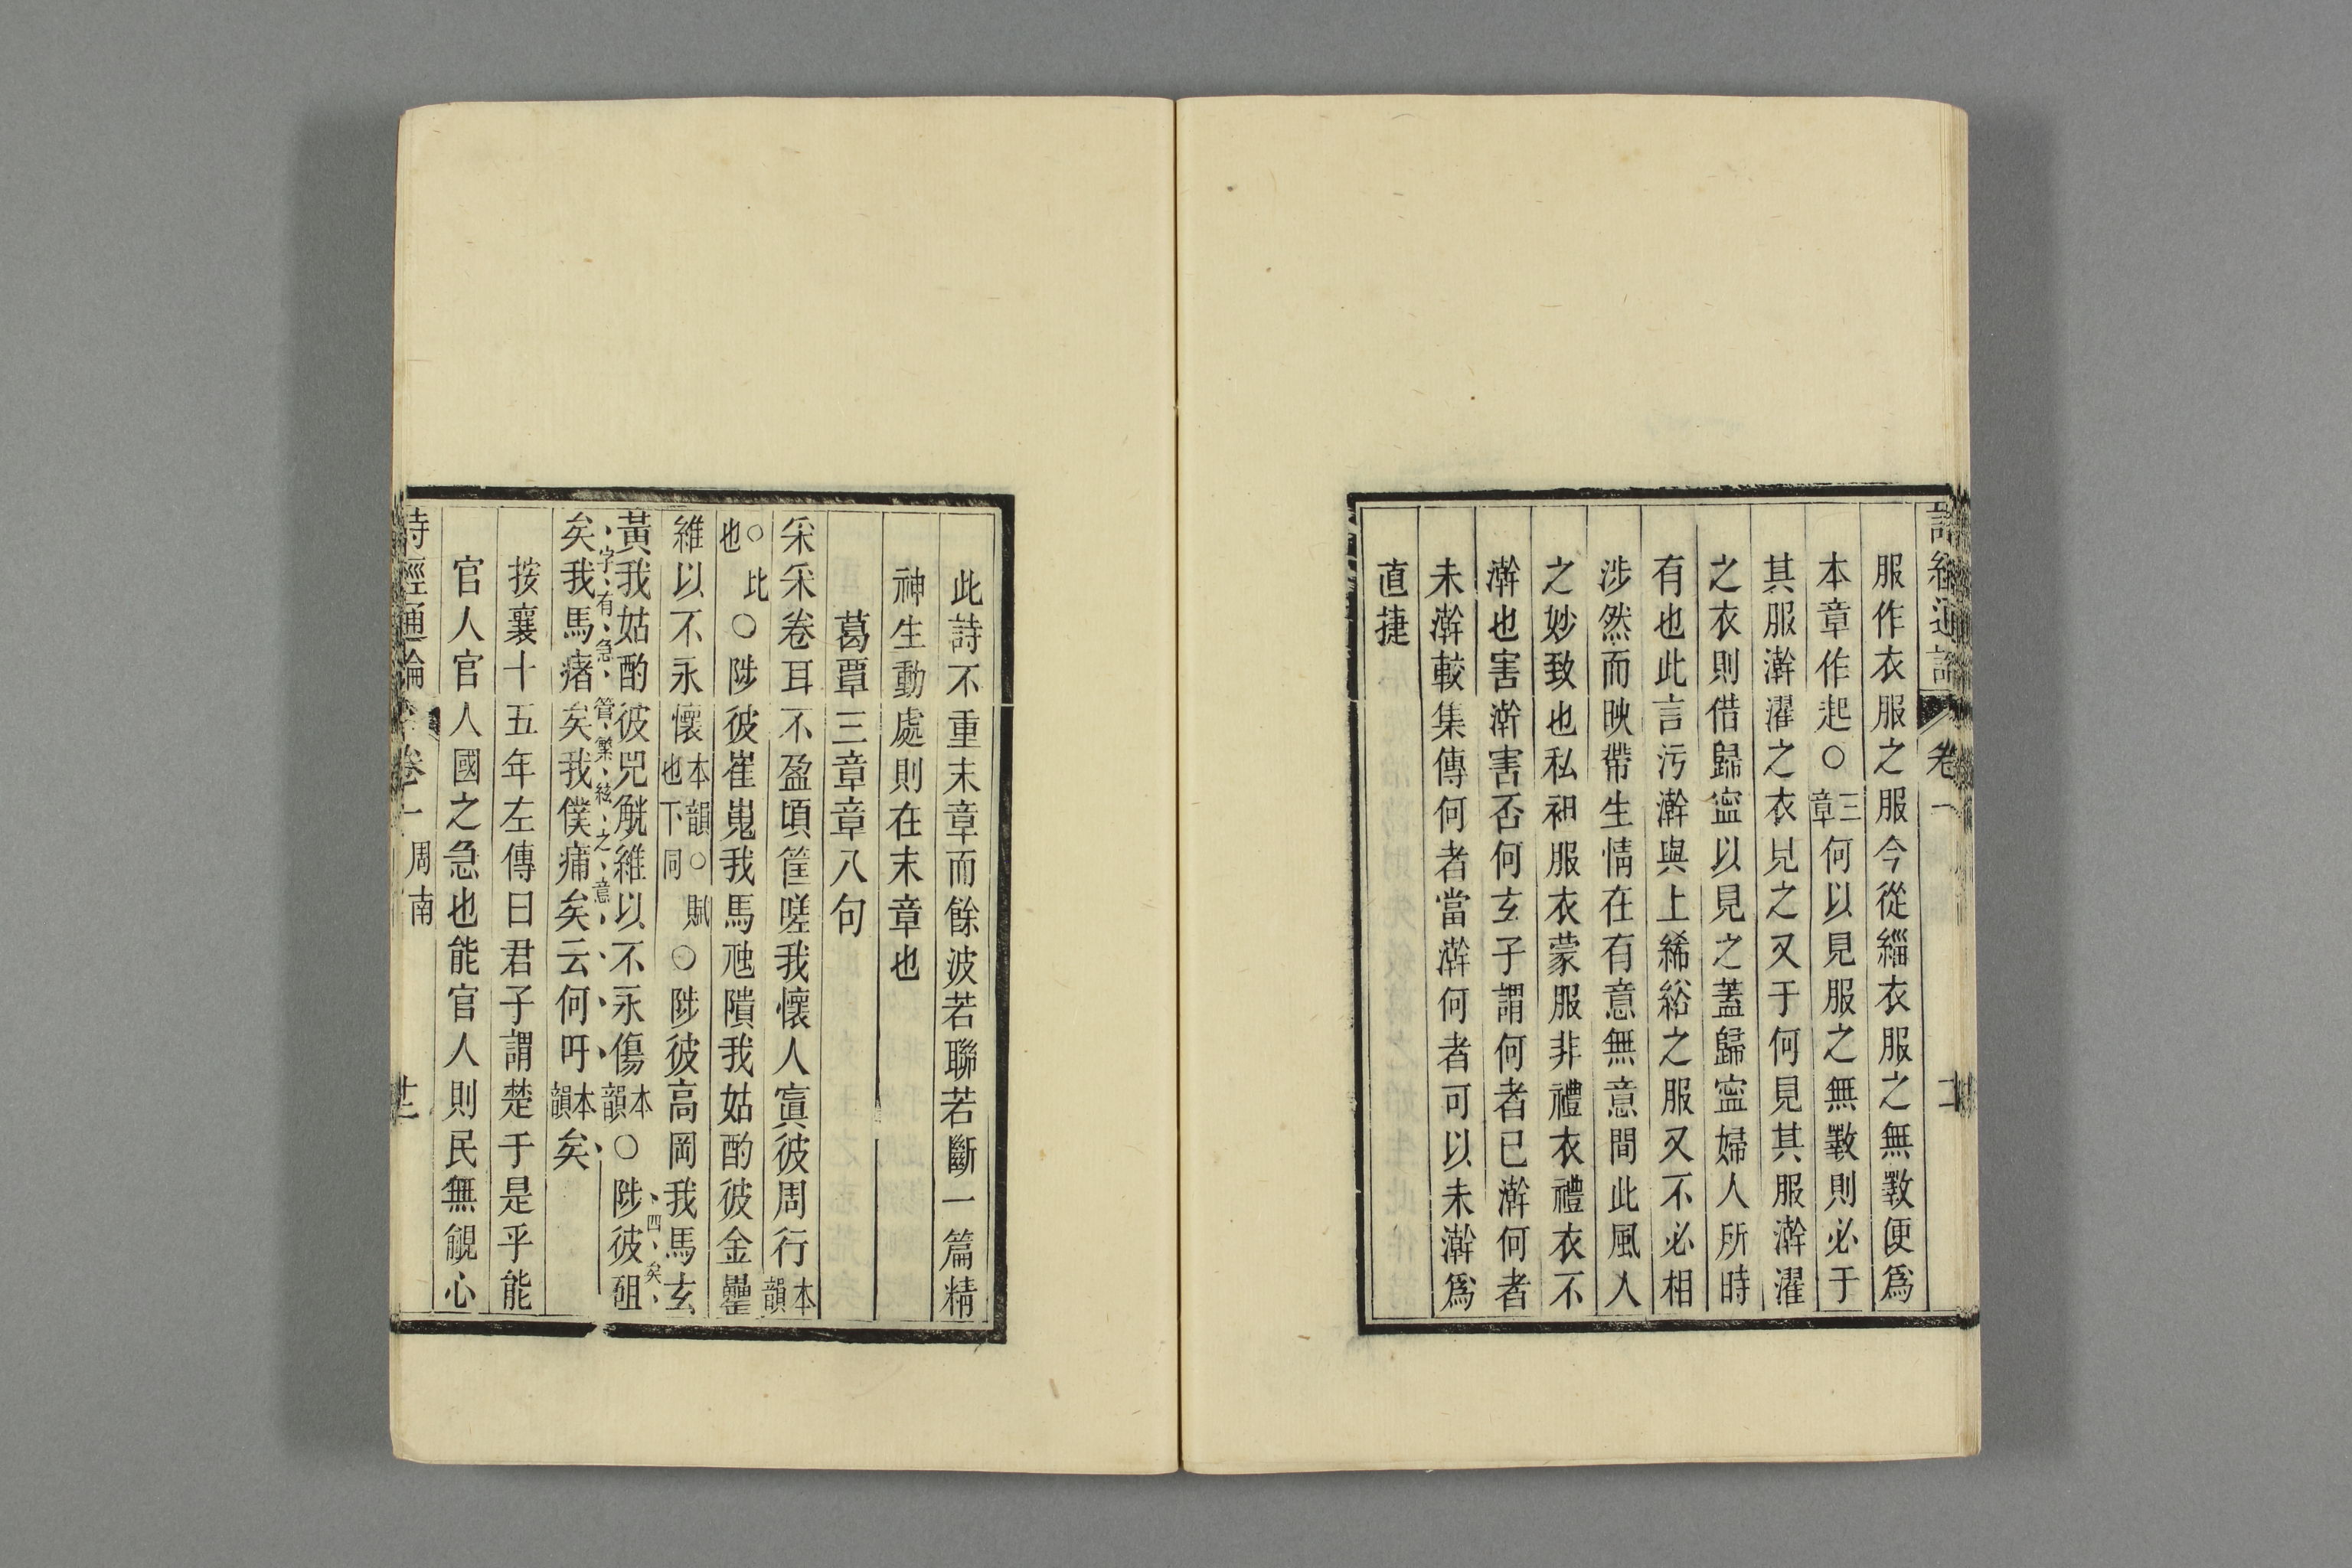 服作衣服之服今從緇衣服之無斁便爲
本章作起○三章何以見服之無斁則必于
其服澣濯之衣見之又于何見其服澣濯
之衣則借歸寍以見之蓋歸寍婦人所時
有也此言污澣與上絺綌之服又不必相
涉然而映帶生情在有意無意間此風人
之妙致也私衵服衣蒙服非禮衣禮衣不
澣也害澣害否何玄子謂何者已澣何者
未澣較集傳何者當澣何者可以未澣爲
直捷
此詩不重末章而餘波若聯若斷一篇精
神生動處則在末章也
葛覃三章章八句
采采卷耳不盈頃筐嗟我懷人寘彼周行本韻
○比也○陟彼崔嵬我馬虺隤我姑酌彼金罍
維以不永懷本韻○賦也下同○陟彼高岡我馬玄
四矣
黃我姑酌彼兕觥維以不永傷本韻○陟彼砠
字有急管繁絃之意
矣我馬瘏矣我僕痡矣云何吁本韻矣
按襄十五年左傳曰君子謂楚于是乎能
官人官人國之急也能官人則民無覦心
詩經通論 卷一 周南